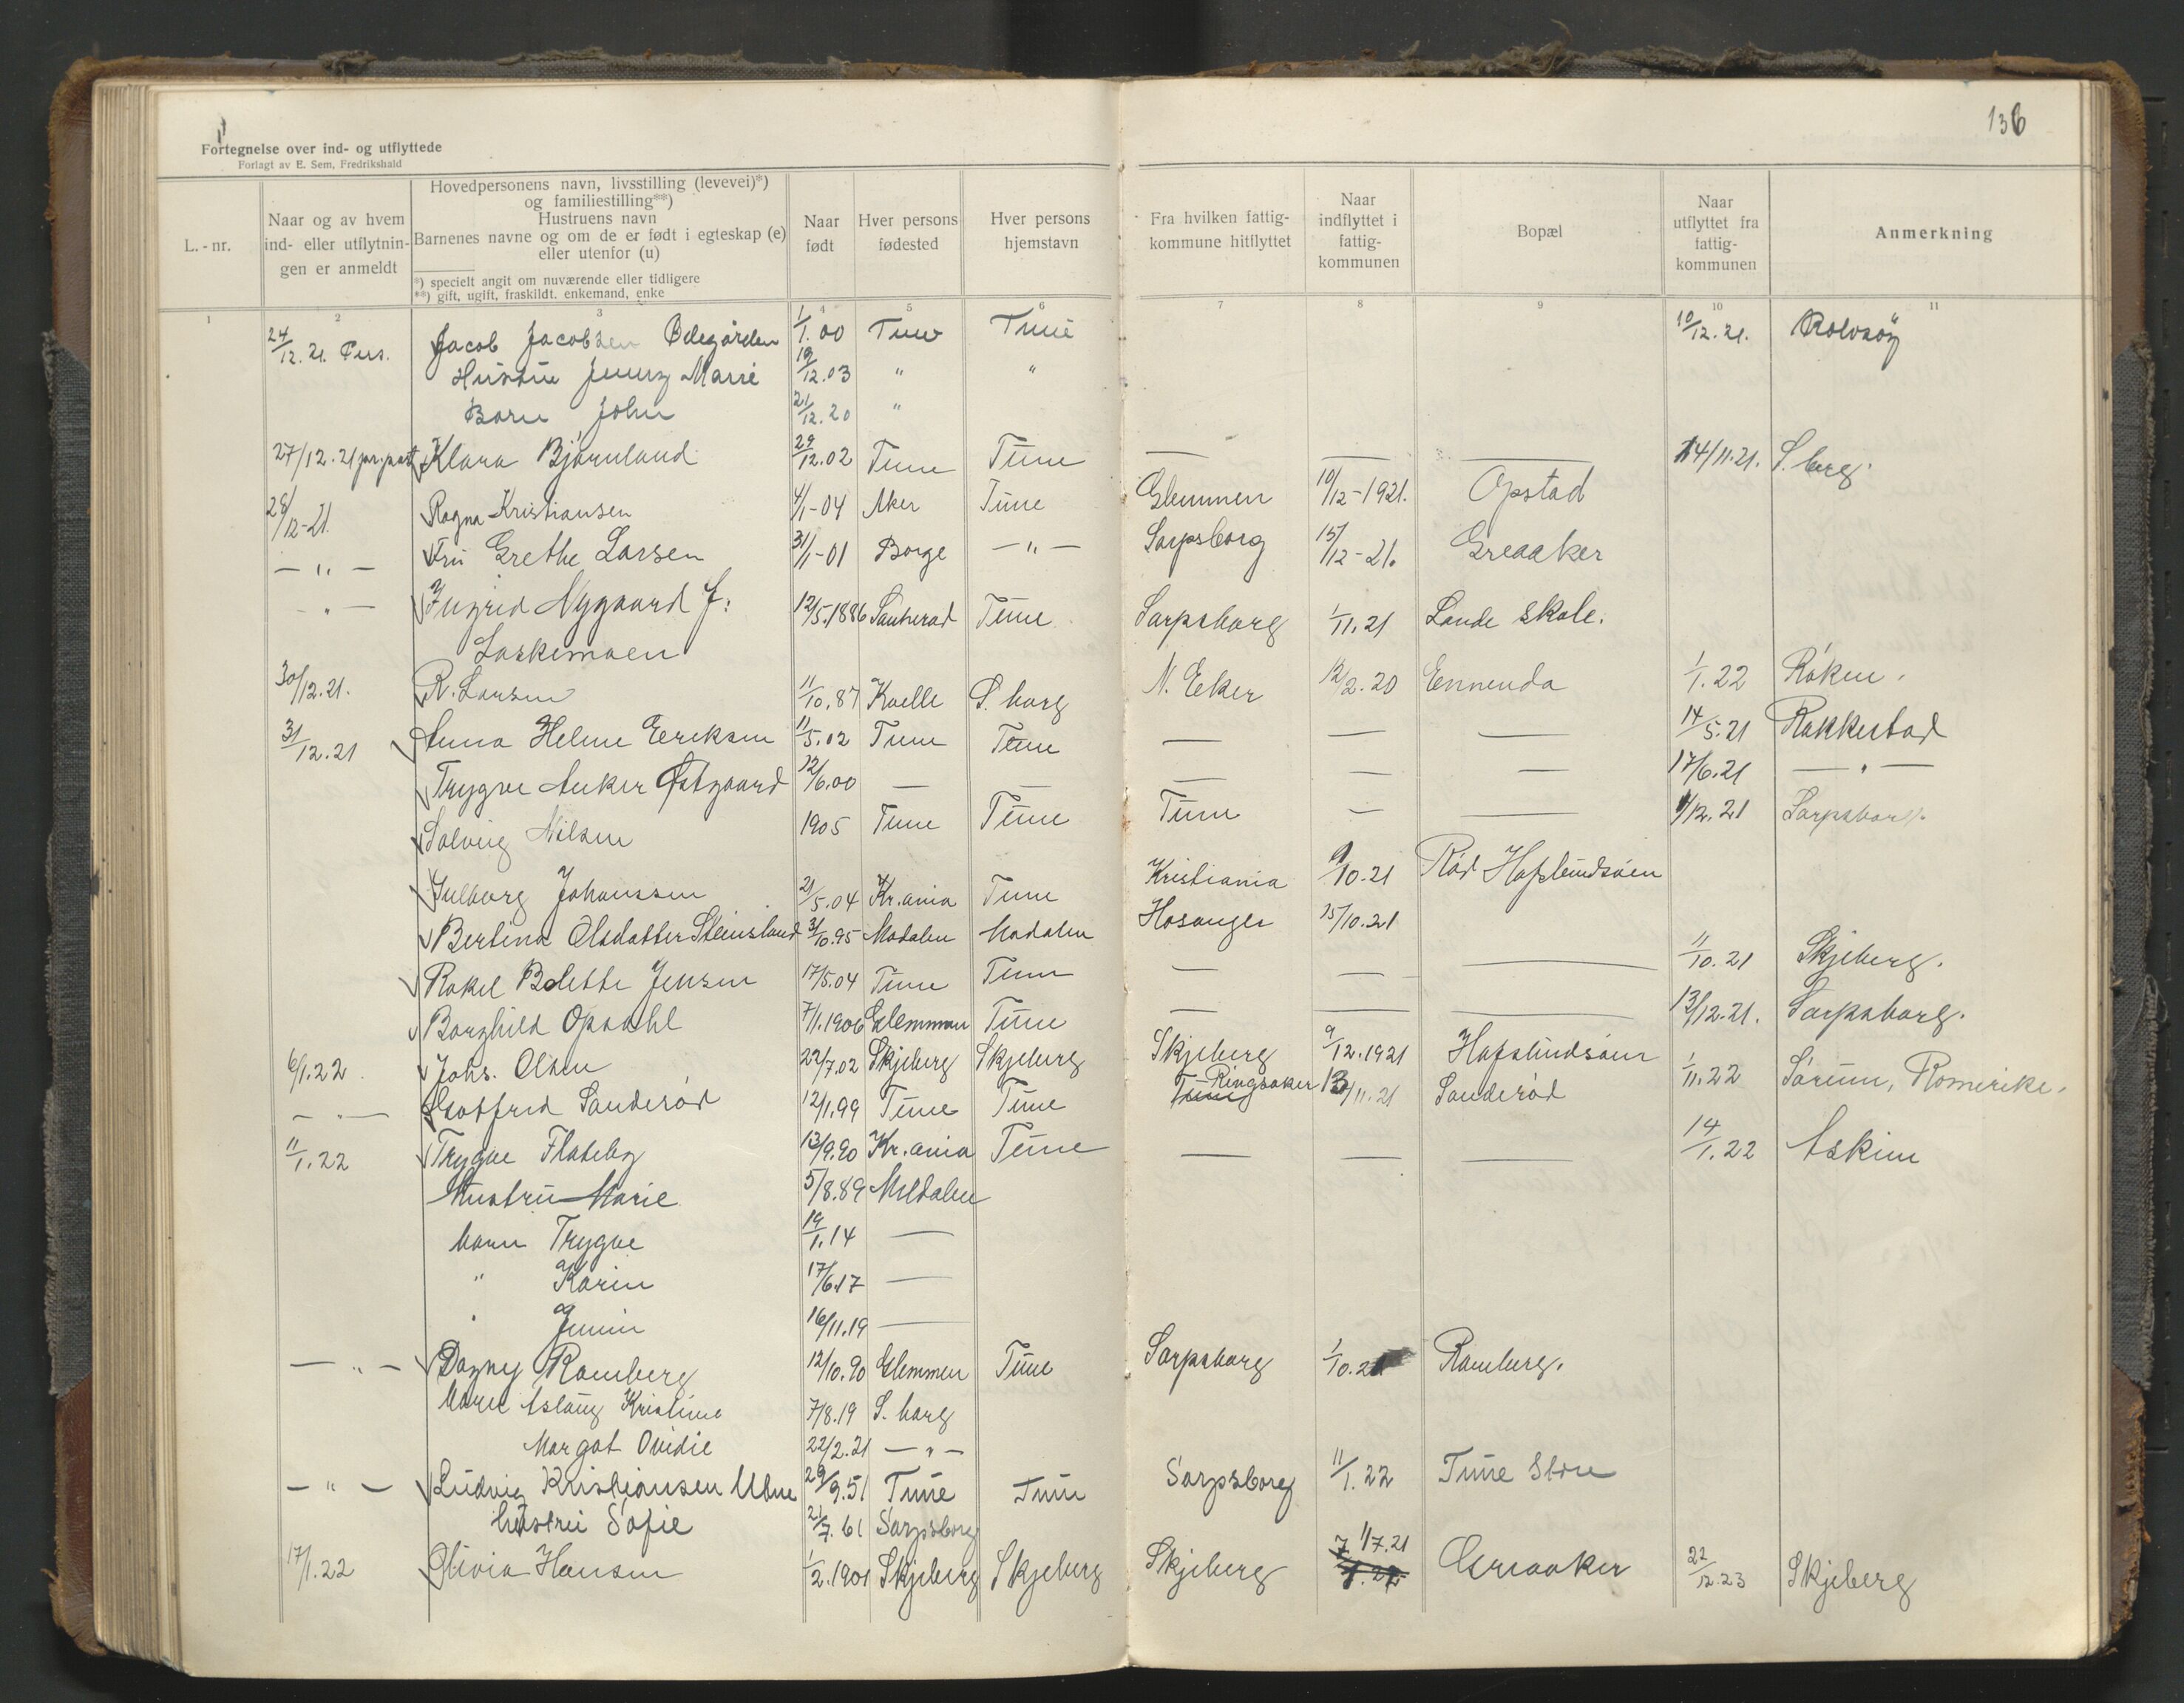 136
Fortegnelse over ind- og utflyttede
Forlagt av E. Sem, Fredrikshald
L.-nr.
Naar og av hvem ind- eller utflytnin- gen er anmeldt
Hovedpersonens navn, livsstilling (levevei)*) og familiestilling**) Hustruens navn Barnenes navne og om de er født i egteskap (e) eller utenfor (u)
*) specielt angit om nuværende eller tidligere
**) gift, ugift, fraskildt. enkemand, enke
Naar født
Hver persons fødested
Hver persons hjemstavn
Fra hvilken fattig- kommune hitflyttet
Naar indflyttet i fattig- kommunen
Bopæl
Naar utflyttet fra fattig- kommunen
Anmerkning
1 2 3 4 5 6 7 8 9 10 11
24/12.21. Pers. Jacob Jacobsen Ødegården 1/1.00 Tune Tune 10/12.21. Rolvsøy
Hustru Jenny Marie 19/12.03 " "
Barn John 21/12.20 "
27/12.21 pr. post Klara Bjørnland 29/12.02 Tune Tune — — — 14/11.21. S.berg.
28/12-21 Ragna Kristiansen 4/1-04 Aker Tune Glemmen 10/12-1921. Opstad
— " — Fru Grethe Larsen 31/1-01 Borge — " — Sarpsborg 15/12-21. Greaaker
— " — Ingrid Nygaard f: 12/5.1886 Sauherad Tune Sarpsborg 1/11.21 Lande skole.
Laskemoen
30/12.21. R. Larsen 11/10.87 Kaelle S.borg N. Eker 12/2.20 Ennenda 1/1.22 Røken.
31/12.21 Anna Helene Eriksen 11/5.02 Tune Tune — — — 14/5.21 Rakkestad
Trygve Anker Østgaard 12/6.00 — — — — — 17/6.21 — " —
Solveig Nilsen 1905 Tune Tune Tune — — 1/12.21 Sarpsborg.
Julborg Johanssen 21/5.04 Kr.ania Tune Kristiania 9/10.21 Rød Hafslundsøen
Bertina Olsdatter Steinsland 31/10.95 Modalen Modalen Hosanger 15/10.21
Rakel Bolette Jensen 17/5.04 Tune Tune — — — 11/10.21 Skjeberg.
Borghild Opsahl 7/1.1906 Glemmen Tune — — — 13/12.21. Sarpsborg.
6/1.22 Johs. Olsen 22/7.02 Skjeberg Skjeberg Skjeberg 9/12.1921 Hafslundsøen
— " — Gotfred Sanderød 12/1.99 Tune Tune Tune Ringsaker 13/11.21 Sanderød 1/11.22 Sørum, Romerike.
11/1.22 Trygve Flateby 13/9.90 Kr.ania Tune — — — 14/1.22 Askim
Hustru Marie 5/8.89 Meldalen
barn Trygve 19/1.14 —
" Karin 17/6.17 —
" 16/11.19 —
— " — Dagny Ramberg 12/10.90 Glemmen Tune Sarpsborg 1/10.21 Ramberg.
barn Aslaug Kristine 7/8.19 S.borg
Margot Ovidie 22/2.21 — " —
— " — Ludvig Kristiansen 29/9.51 Tune Tune Sarpsborg 11/1.22 Tune
hustru Sofie 21/7.61 Sarpsborg
17/1.22 Olivia Hansen 1/2.1901 Skjeberg Skjeberg Skjeberg 1/7.21 Greaaker 22/12.23 Skjeberg